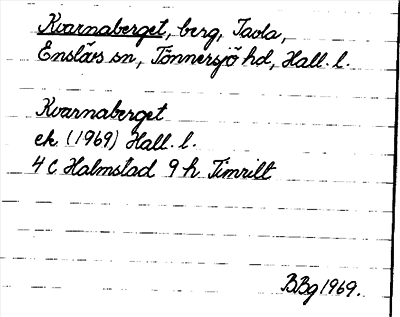 Kvarnaberget, berg, Tavla,
Enslövs sn, Tönnersjö hd, Hall. l.
Kvarnaberget
ek (1969) Hall. l.
4 C Halmstad 9 h Timrilt
BBg 1969.